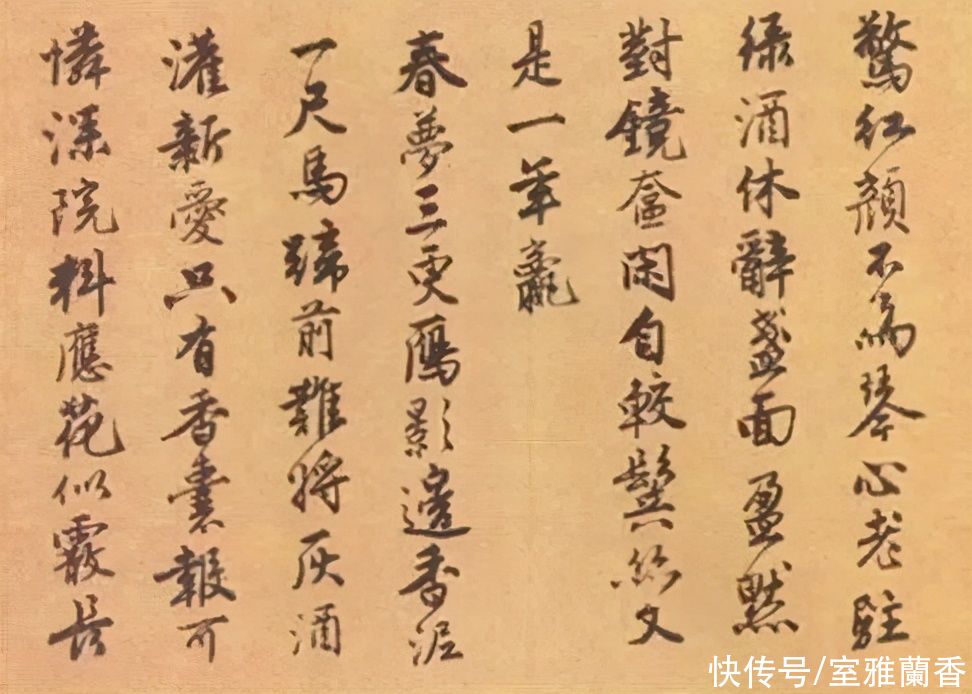 驚紅顏不為琴心老駐
綠酒休辭盞面盈黙
對鏡奩閑自較鬢絲又
是一年贏
春夢三更鴈影邊香泥
一尺馬蹄前難將灰酒
灌新愛只有香囊報可
憐深院料應花似霰長
快传号/室雅蘭香